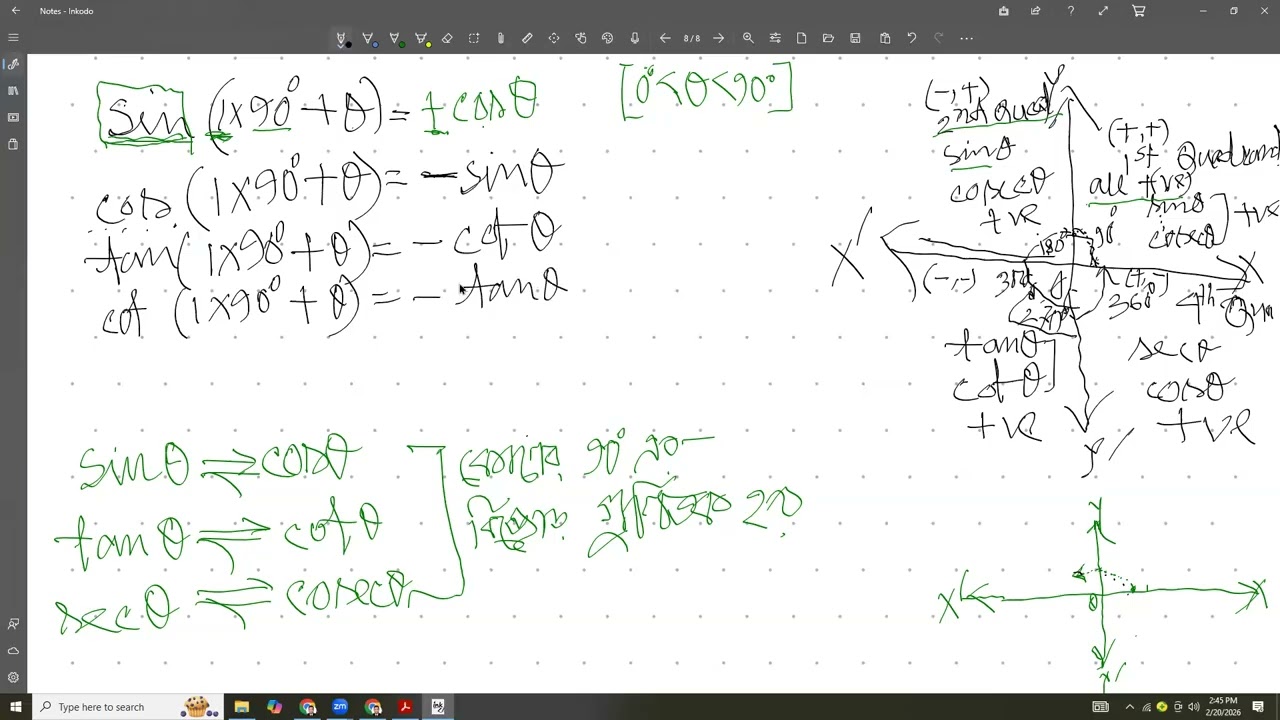 Notes - Inkodo
8/8
Sin (1×90°+θ) = + cosθ
[0°<θ<90°]
cos (1×90°+θ) = - sinθ
tan (1×90°+θ) = - cot θ
cot (1×90°+θ) = - tanθ
(-,+)
2nd Quad
sinθ
cosecθ
+ve
Y
(+,+)
1st Quadrant
all +(ve)
sinθ
cosecθ
+ve
X'
180°
90°
X
(-,-)
270°
360°
4th
tanθ
cotθ
+ve
secθ
cosθ
+ve
Y'
sinθ ⇌ cosθ
tanθ ⇌ cotθ
secθ ⇌ cosecθ
কোণের 90° এর
Y
X'
0
X
Type here to search
2:45 PM
2/20/2026